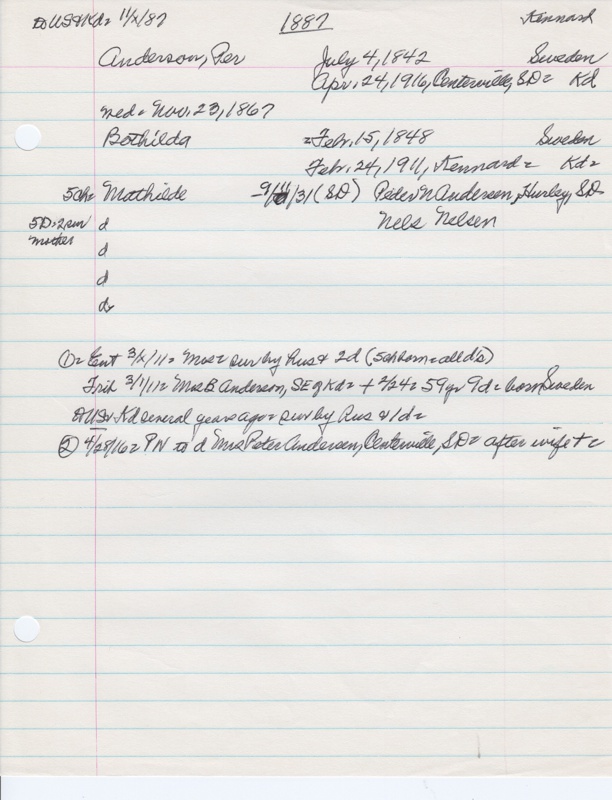 to US & Kd = 11/x/87 1887 Kennard
Anderson, Per July 4, 1842 Sweden
Apr. 24, 1916, Centerville, SD = Kd
med = Nov. 23, 1867
Bothilda = Febr. 15, 1848 Sweden
Febr. 24, 1911, Kennard = Kd =
5ch = Mathilde /31 (SD) Peter N Andersen, Hurley, SD
5D, 2 sur d Nels Nelsen
mother d
d
d
① = Ent 3/x/11 = Mrs = sur by hus & 2d (5ch born = all d's)
Trib 3/1/11 = Mrs B Anderson, SE of Kd = + 2/24 = 59yr 9d = born Sweden
to US & Kd several years ago = sur by hus & 1d =
② 4/28/16 = PN to d Mrs Peter Andersen, Centerville, SD = after wife + =